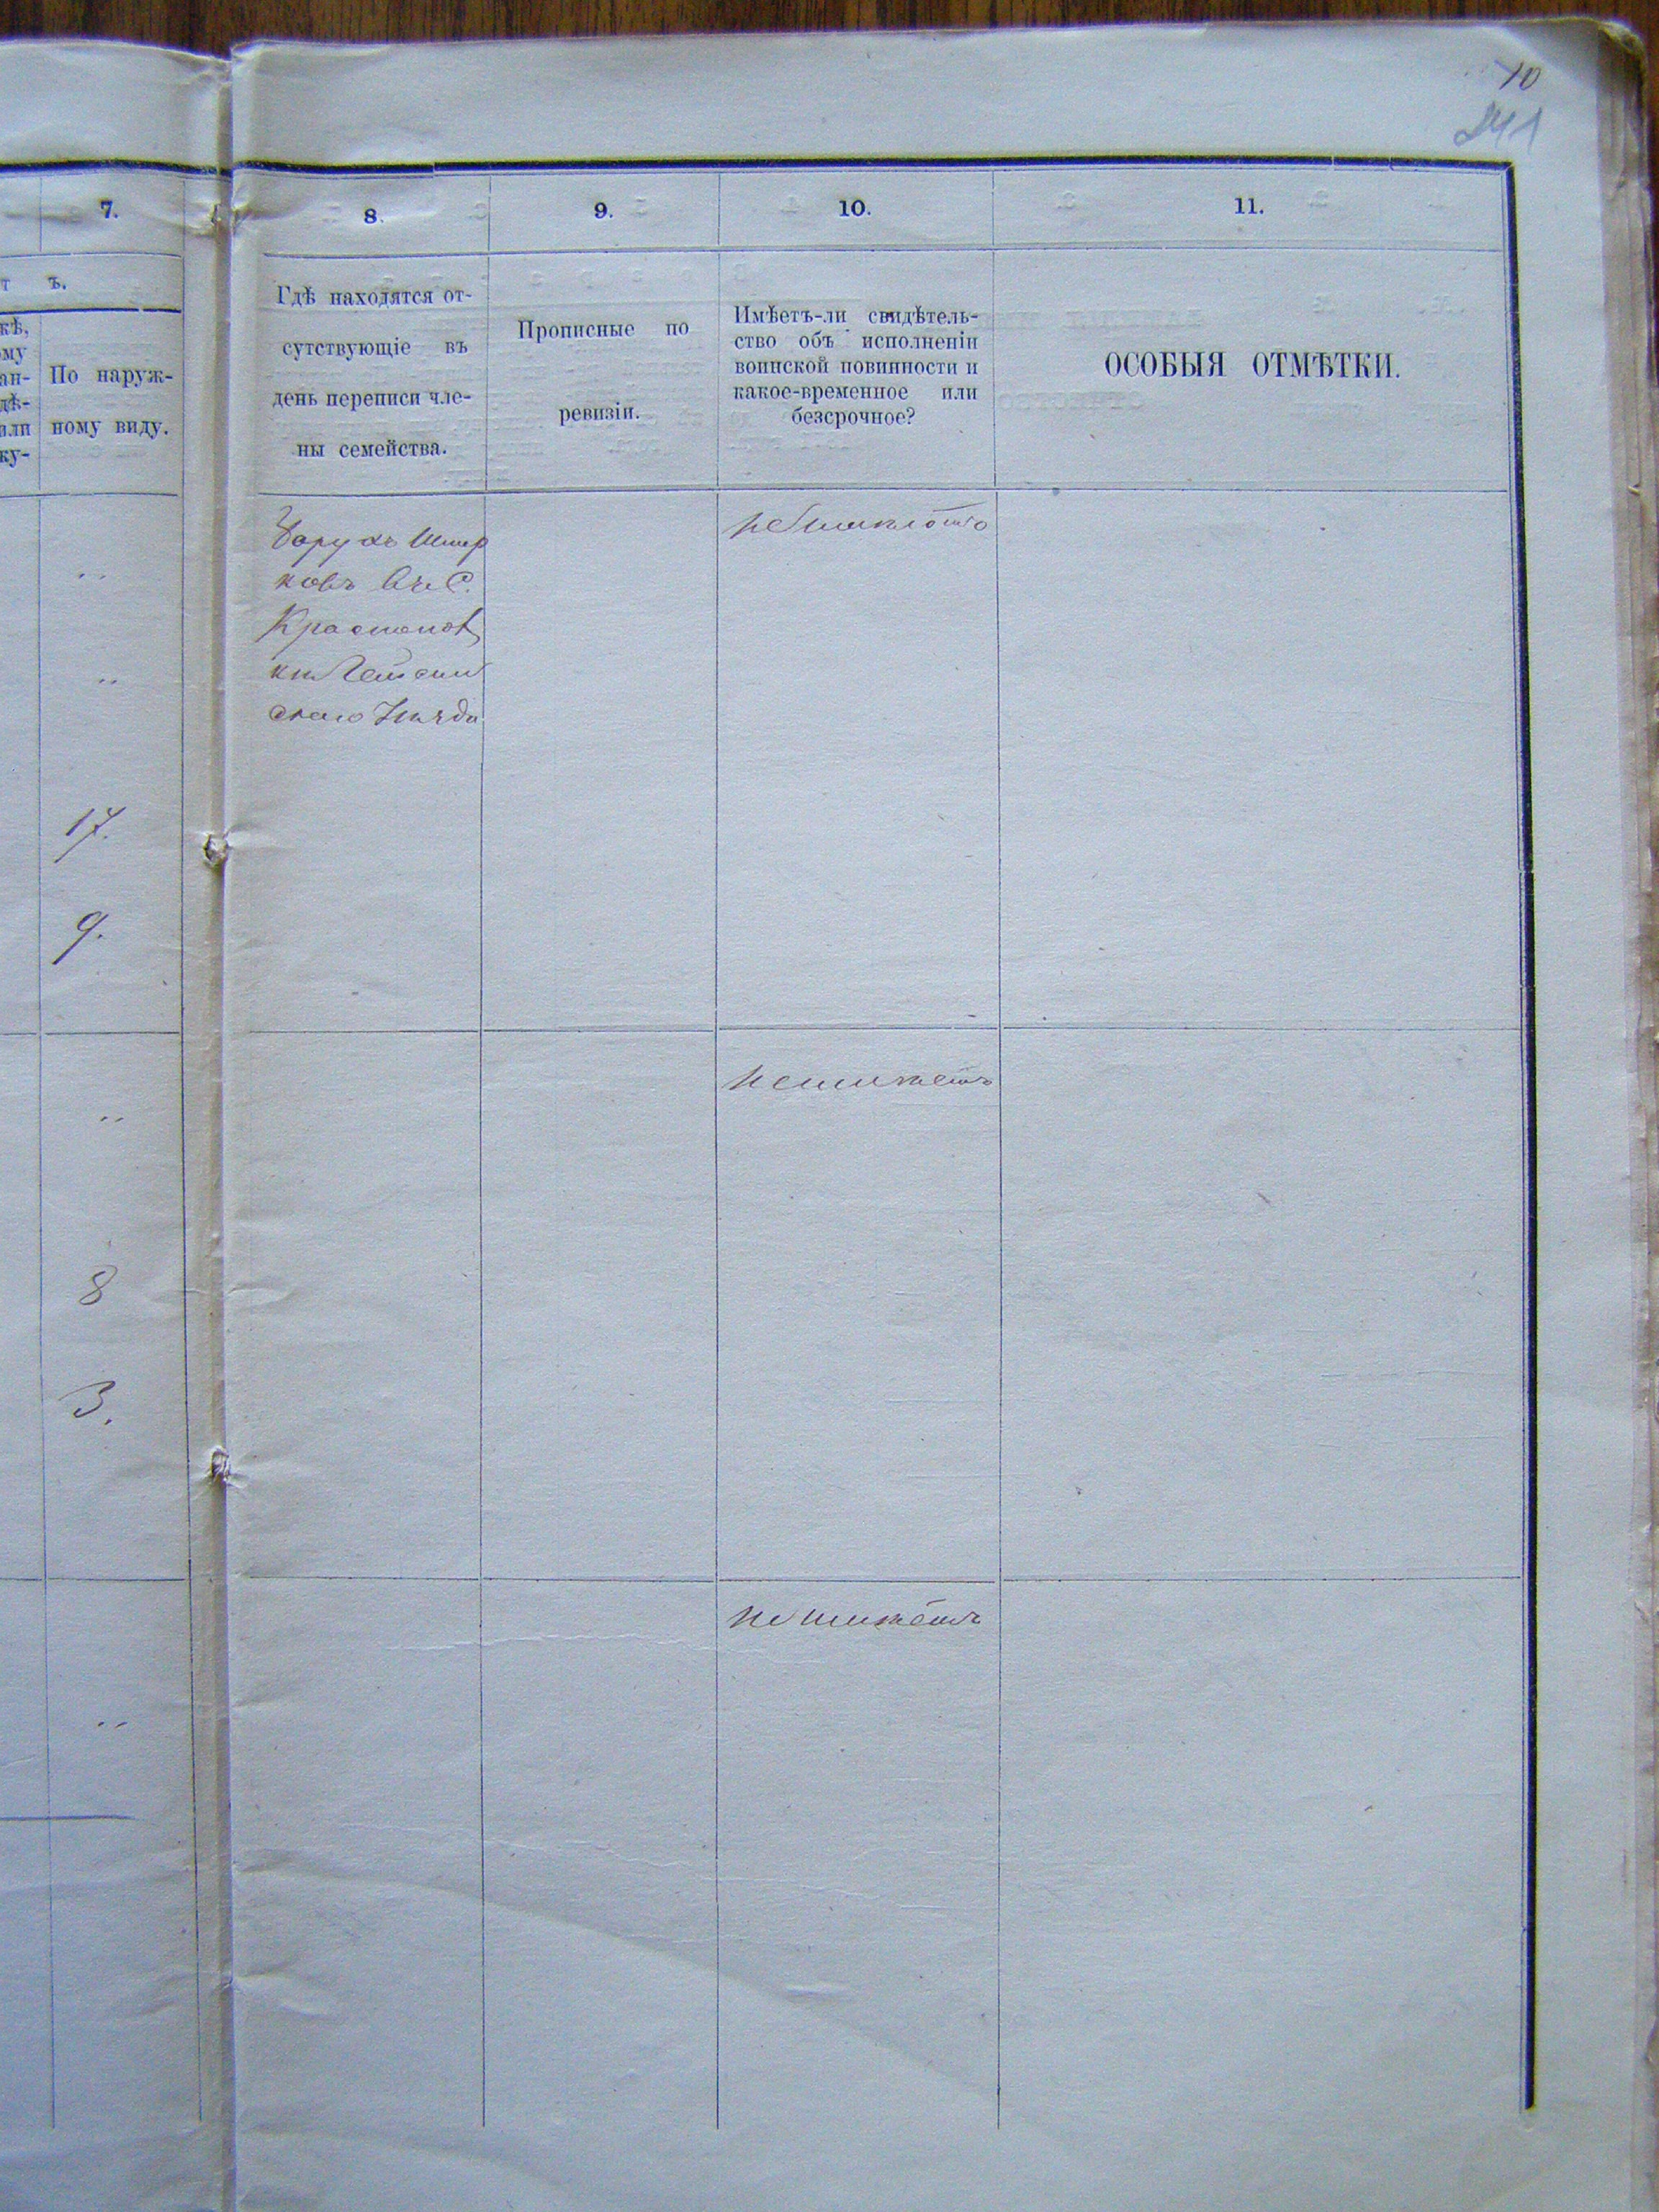 10
241
7.
8.
9.
10.
11.
т ъ.
кѣ,
ому
ан-
дѣ-
или
ку-
По наруж-
ному виду.
Гдѣ находятся от-
сутствующіе въ
день переписи чле-
ны семейства.
Прописные по
ревизіи.
Имѣетъ-ли свидѣтель-
ство объ исполненіи
воинской повинности и
какое-временное или
безсрочное?
ОСОБЫЯ ОТМѢТКИ.
"
"
17.
9.
"
8
3.
"
ковъ въ С.
неимѣетъ
неимѣетъ
неимѣетъ